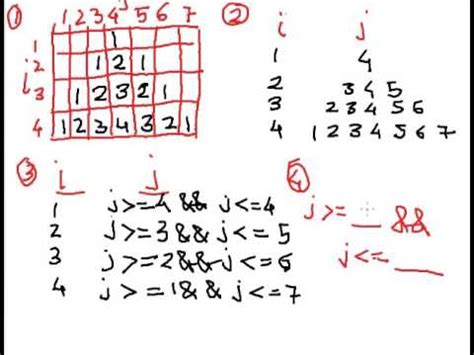 ① j
1 2 3 4 5 6 7
i
1 1
2 1 2 1
3 1 2 3 2 1
4 1 2 3 4 3 2 1
② i j
1 4
2 3 4 5
3 2 3 4 5 6
4 1 2 3 4 5 6 7
③ i j
1 j>=4 && j<=4
2 j>=3 && j<=5
3 j>=2 && j<=6
4 j>=1 && j<=7
④
j>= __ &&
j<= __